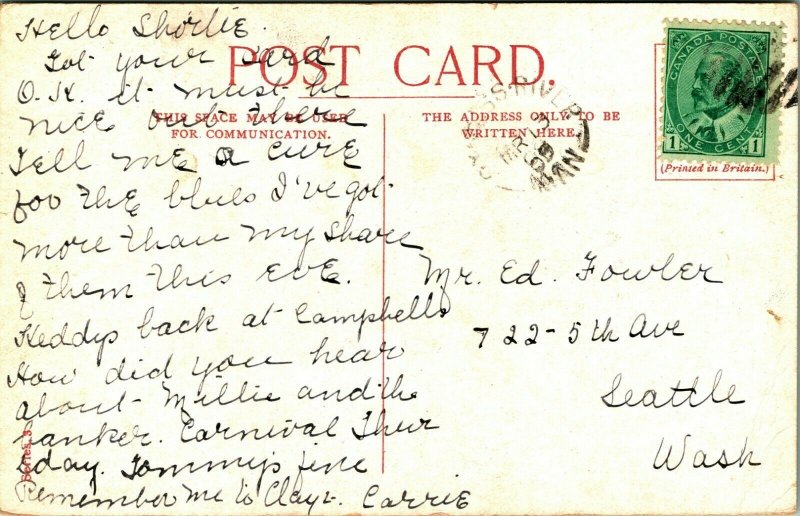 POST CARD.
THIS SPACE MAY BE USED
FOR COMMUNICATION.
THE ADDRESS ONLY TO BE
WRITTEN HERE.
Hello Shortie
Got your card
O.K. it must be
nice out there
Tell me a cure
for the blues I've got
more than my share
of them this eve.
Keddys back at Campbells
How did you hear
about Millie and the
Banker. Carnival Thur
sday. Tommy's fine
Remember me to Clayt. Carrie
Series. 3
CANADA POSTAGE
ONE CENT
1 1
(Printed in Britain.)
RIVER
MAN
Mr. Ed. Fowler
722-5th Ave
Seattle
Wash